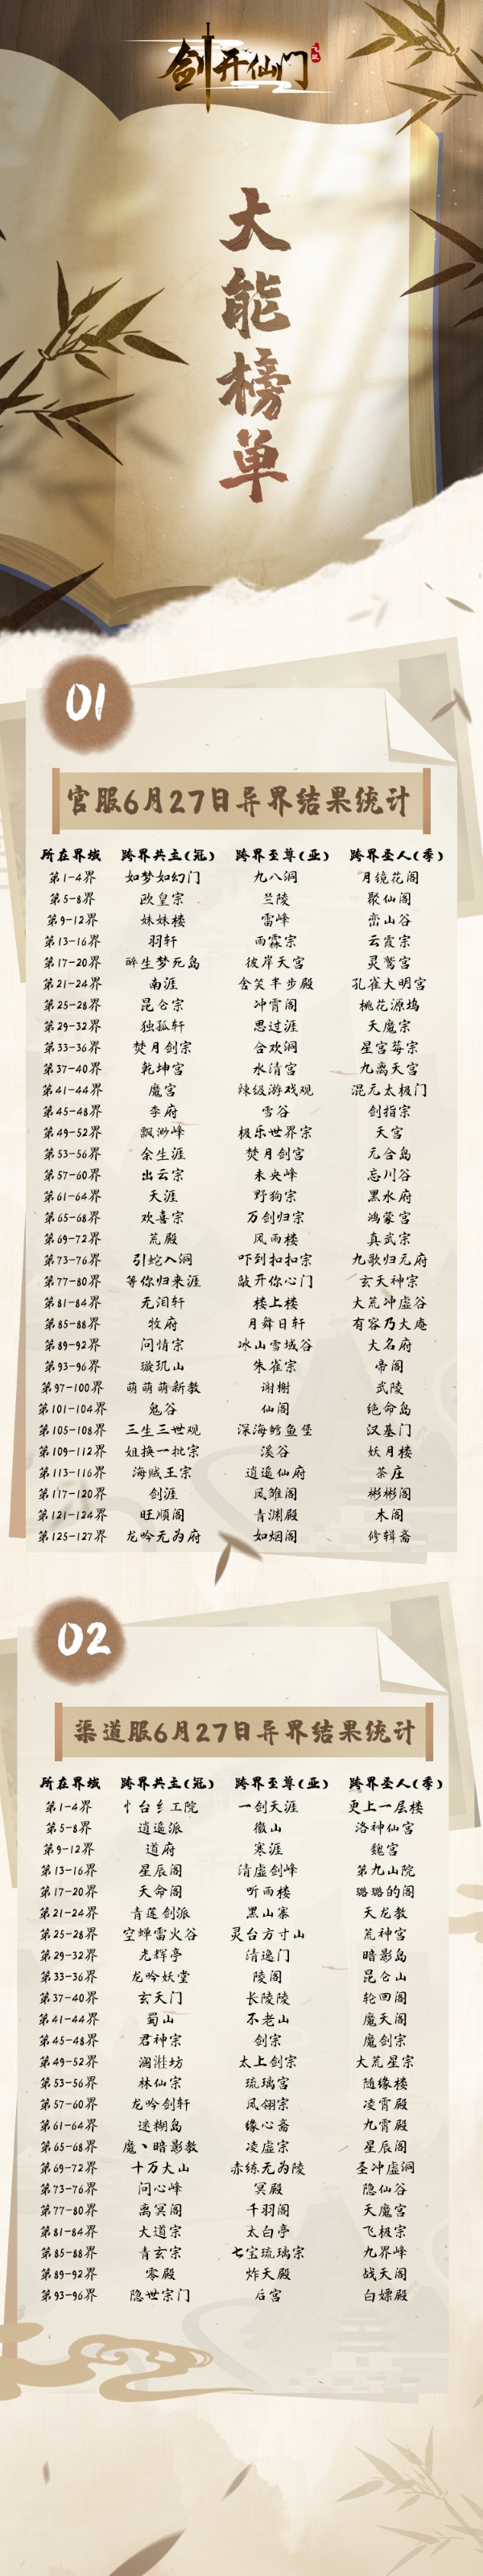 剑开仙门
飞升
大能榜单
01
官服6月27日异界结果统计
所在界域 跨界共主(冠) 跨界至尊(亚) 跨界圣人(季)
第1-4界 如梦如幻门 九八洞 月镜花阁
第5-8界 欧皇宗 兰陵 聚仙阁
第9-12界 妹妹楼 雷峰 峦山谷
第13-16界 羽轩 雨霖宗 云霞宗
第17-20界 醉生梦死岛 彼岸天宫 灵鹫宫
第21-24界 南涯 含笑半步殿 孔雀大明宫
第25-28界 昆仑宗 冲霄阁 桃花源坞
第29-32界 独孤轩 思过涯 天魔宗
第33-36界 焚月剑宗 合欢洞 星宫莓宗
第37-40界 乾坤宫 水清宫 九离天宫
第41-44界 魔宫 辣级游戏观 混元太极门
第45-48界 李府 雪谷 剑指宗
第49-52界 飘渺峰 极乐世界宗 天宫
第53-56界 余生涯 焚月剑宫 元合岛
第57-60界 出云宗 未央峰 忘川谷
第61-64界 天涯 野狗宗 黑水府
第65-68界 欢喜宗 万剑归宗 鸿蒙宫
第69-72界 荒殿 风雨楼 真武宗
第73-76界 引蛇入洞 吓到扣扣宗 九歌归元府
第77-80界 等你归来涯 敲开你心门 玄天神宗
第81-84界 无泪轩 楼上楼 大荒冲虚谷
第85-88界 牧府 月舞日轩 有容乃大庵
第89-92界 问情宗 冰山雪域谷 大名府
第93-96界 璇玑山 朱雀宗 帝阁
第97-100界 萌萌萌新教 谢榭 武陵
第101-104界 鬼谷 仙阁 绝命岛
第105-108界 三生三世观 深海鳕鱼堡 汉基门
第109-112界 姐换一批宗 溪谷 妖月楼
第113-116界 海贼王宗 逍遥仙府 茶庄
第117-120界 剑涯 凤雏阁 彬彬阁
第121-124界 旺顺阁 青渊殿 木阁
第125-127界 龙吟无为府 如烟阁 修辑斋
02
渠道服6月27日异界结果统计
所在界域 跨界共主(冠) 跨界至尊(亚) 跨界圣人(季)
第1-4界 忄台纟工院 一剑天涯 更上一层楼
第5-8界 逍遥派 徽山 洛神仙宫
第9-12界 道府 寒涯 魏宫
第13-16界 星辰阁 清虚剑峰 第九山院
第17-20界 天命阁 听雨楼 璐璐的阁
第21-24界 青莲剑派 黑山寨 天龙教
第25-28界 空蝉雷火谷 灵台方寸山 荒神宫
第29-32界 光辉亭 清逸门 暗影岛
第33-36界 龙吟妖堂 陵阁 昆仑山
第37-40界 玄天门 长陵陵 轮回阁
第41-44界 蜀山 不老山 魔天阁
第45-48界 君神宗 剑宗 魔剑宗
第49-52界 坊 太上剑宗 大荒星宗
第53-56界 林仙宗 琉璃宫 随缘楼
第57-60界 龙吟剑轩 凤翎宗 凌霄殿
第61-64界 迷糊岛 缘心斋 九霄殿
第65-68界 魔丶暗影教 凌虚宗 星辰阁
第69-72界 十万大山 赤练无为陵 圣冲虚洞
第73-76界 问心峰 冥殿 隐仙谷
第77-80界 离冥阁 千羽阁 天魔宫
第81-84界 大道宗 太白亭 飞极宗
第85-88界 青玄宗 七宝琉璃宗 九界峰
第89-92界 零殿 炸天殿 战天阁
第93-96界 隐世宗门 后宫 白嫖殿